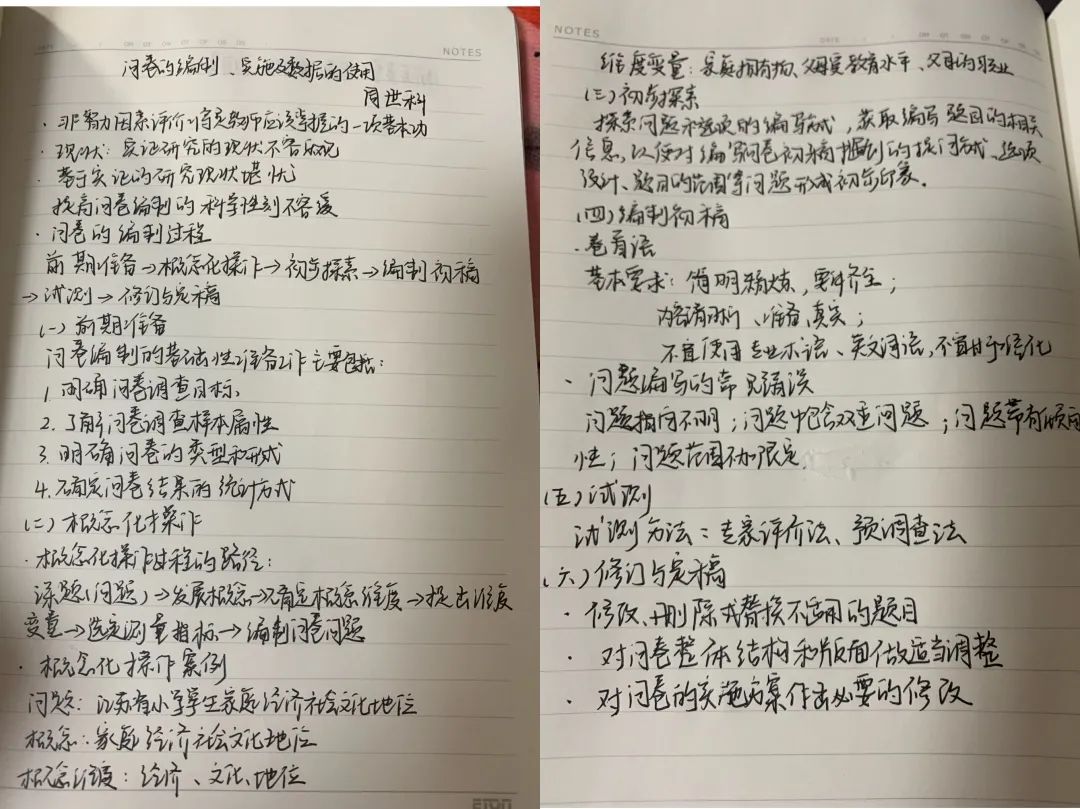 NOTES
问卷的编制、实施及数据的使用
周世科
· 非智力因素评价将是教师应该掌握的一项基本功
· 现状: 实证研究的现状不容乐观
· 基于实证的研究现状堪忧
提高问卷编制的科学性刻不容缓
· 问卷的编制过程
前期准备→概念化操作→初步探索→编制初稿
→试测→修订与定稿
(一) 前期准备
问卷编制的基础性准备工作主要包括:
1. 明确问卷调查目标.
2. 了解问卷调查样本属性
3. 明确问卷的类型和形式
4. 确定问卷结果的统计方式
(二) 概念化操作
· 概念化操作过程的路径:
课题(问题)→发展概念→确定概念维度→找出维度
变量→选定测量指标→编制问卷问题
· 概念化操作案例
问题: 江苏省小学学生家庭经济社会文化地位
概念: 家庭经济社会文化地位
概念维度: 经济、文化、地位
ETON
NOTES
DATE
维度变量: 家庭拥有物、父母受教育水平、父母的职业
(三) 初步探索
探索问题和选项的编写形式, 获取编写题目的相关
信息, 以便对编写问卷初稿时的提问形式、选项
设计、题目的范围等问题形成初步印象.
(四) 编制初稿
· 卷首语
基本要求: 简明精炼, 要件齐全;
内容清晰、准备、真实;
不宜使用专业术语、英文词语, 不宜过于口语化
· 问题编写的常见错误
问题指向不明; 问题中包含双重问题; 问题带有倾向
性; 问题范围不加限定.
(五) 试测
试测方法: 专家评价法、预调查法
(六) 修订与定稿
· 修改、删除或替换不适用的题目
· 对问卷整体结构和版面做适当调整
· 对问卷的实施方案作出必要的修改